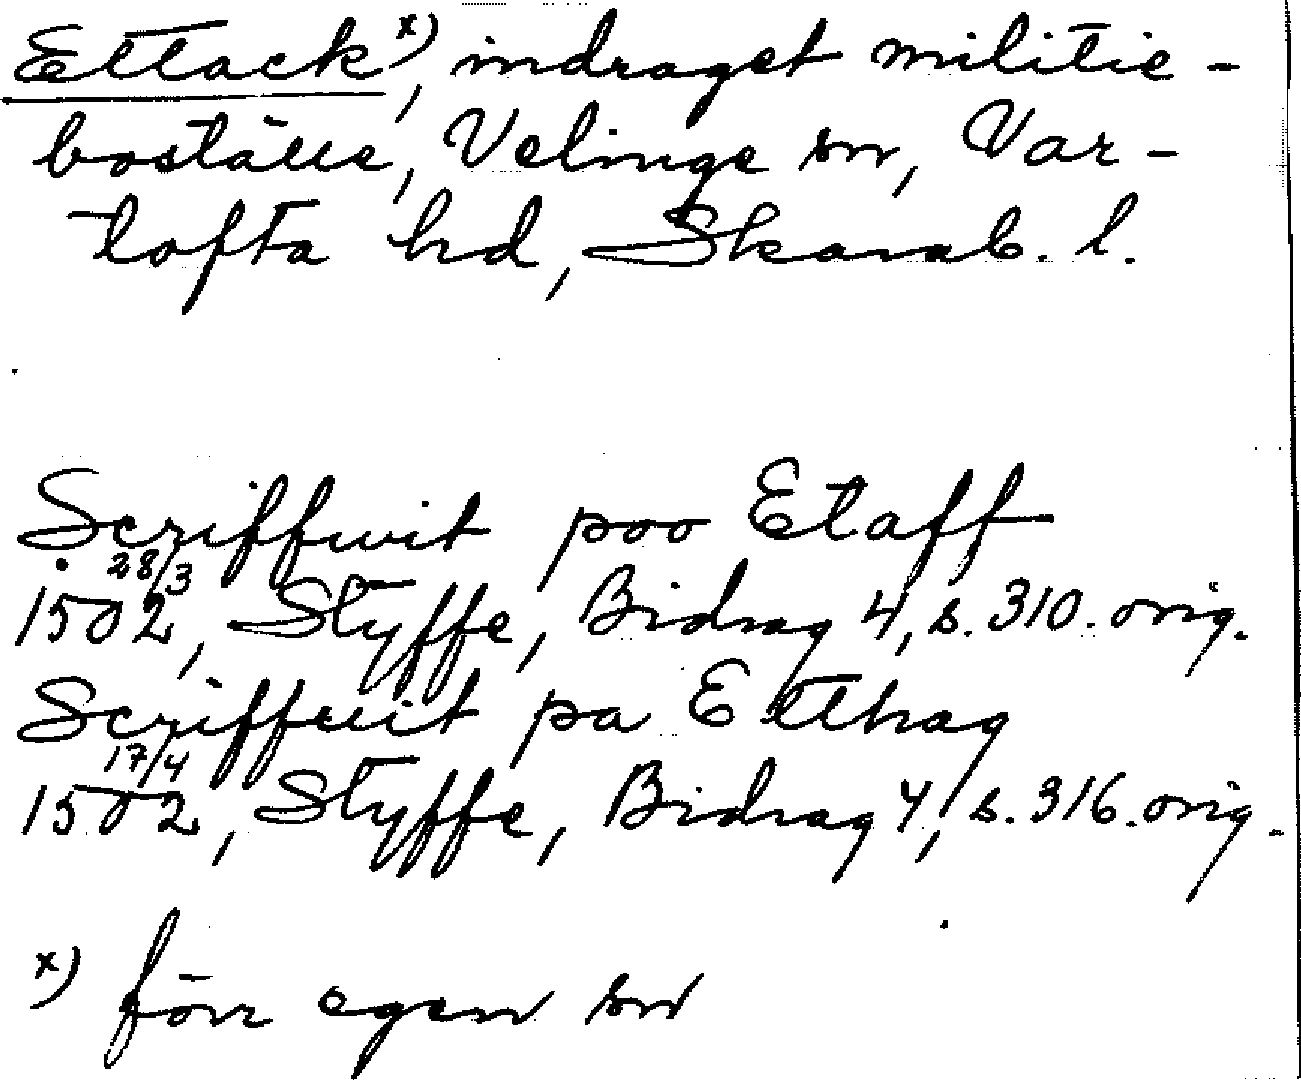 Ettack x), indraget militie-
boställe, Velinge sn, Var-
tofta hd, Skarab. l.
Scriffwit poo Etaff
28/3
1502, Styffe, Bidrag 4, s. 310. orig.
Scriffuit pa Etthag
17/4
1502, Styffe, Bidrag 4, s. 316. orig.
x) förr egen sn